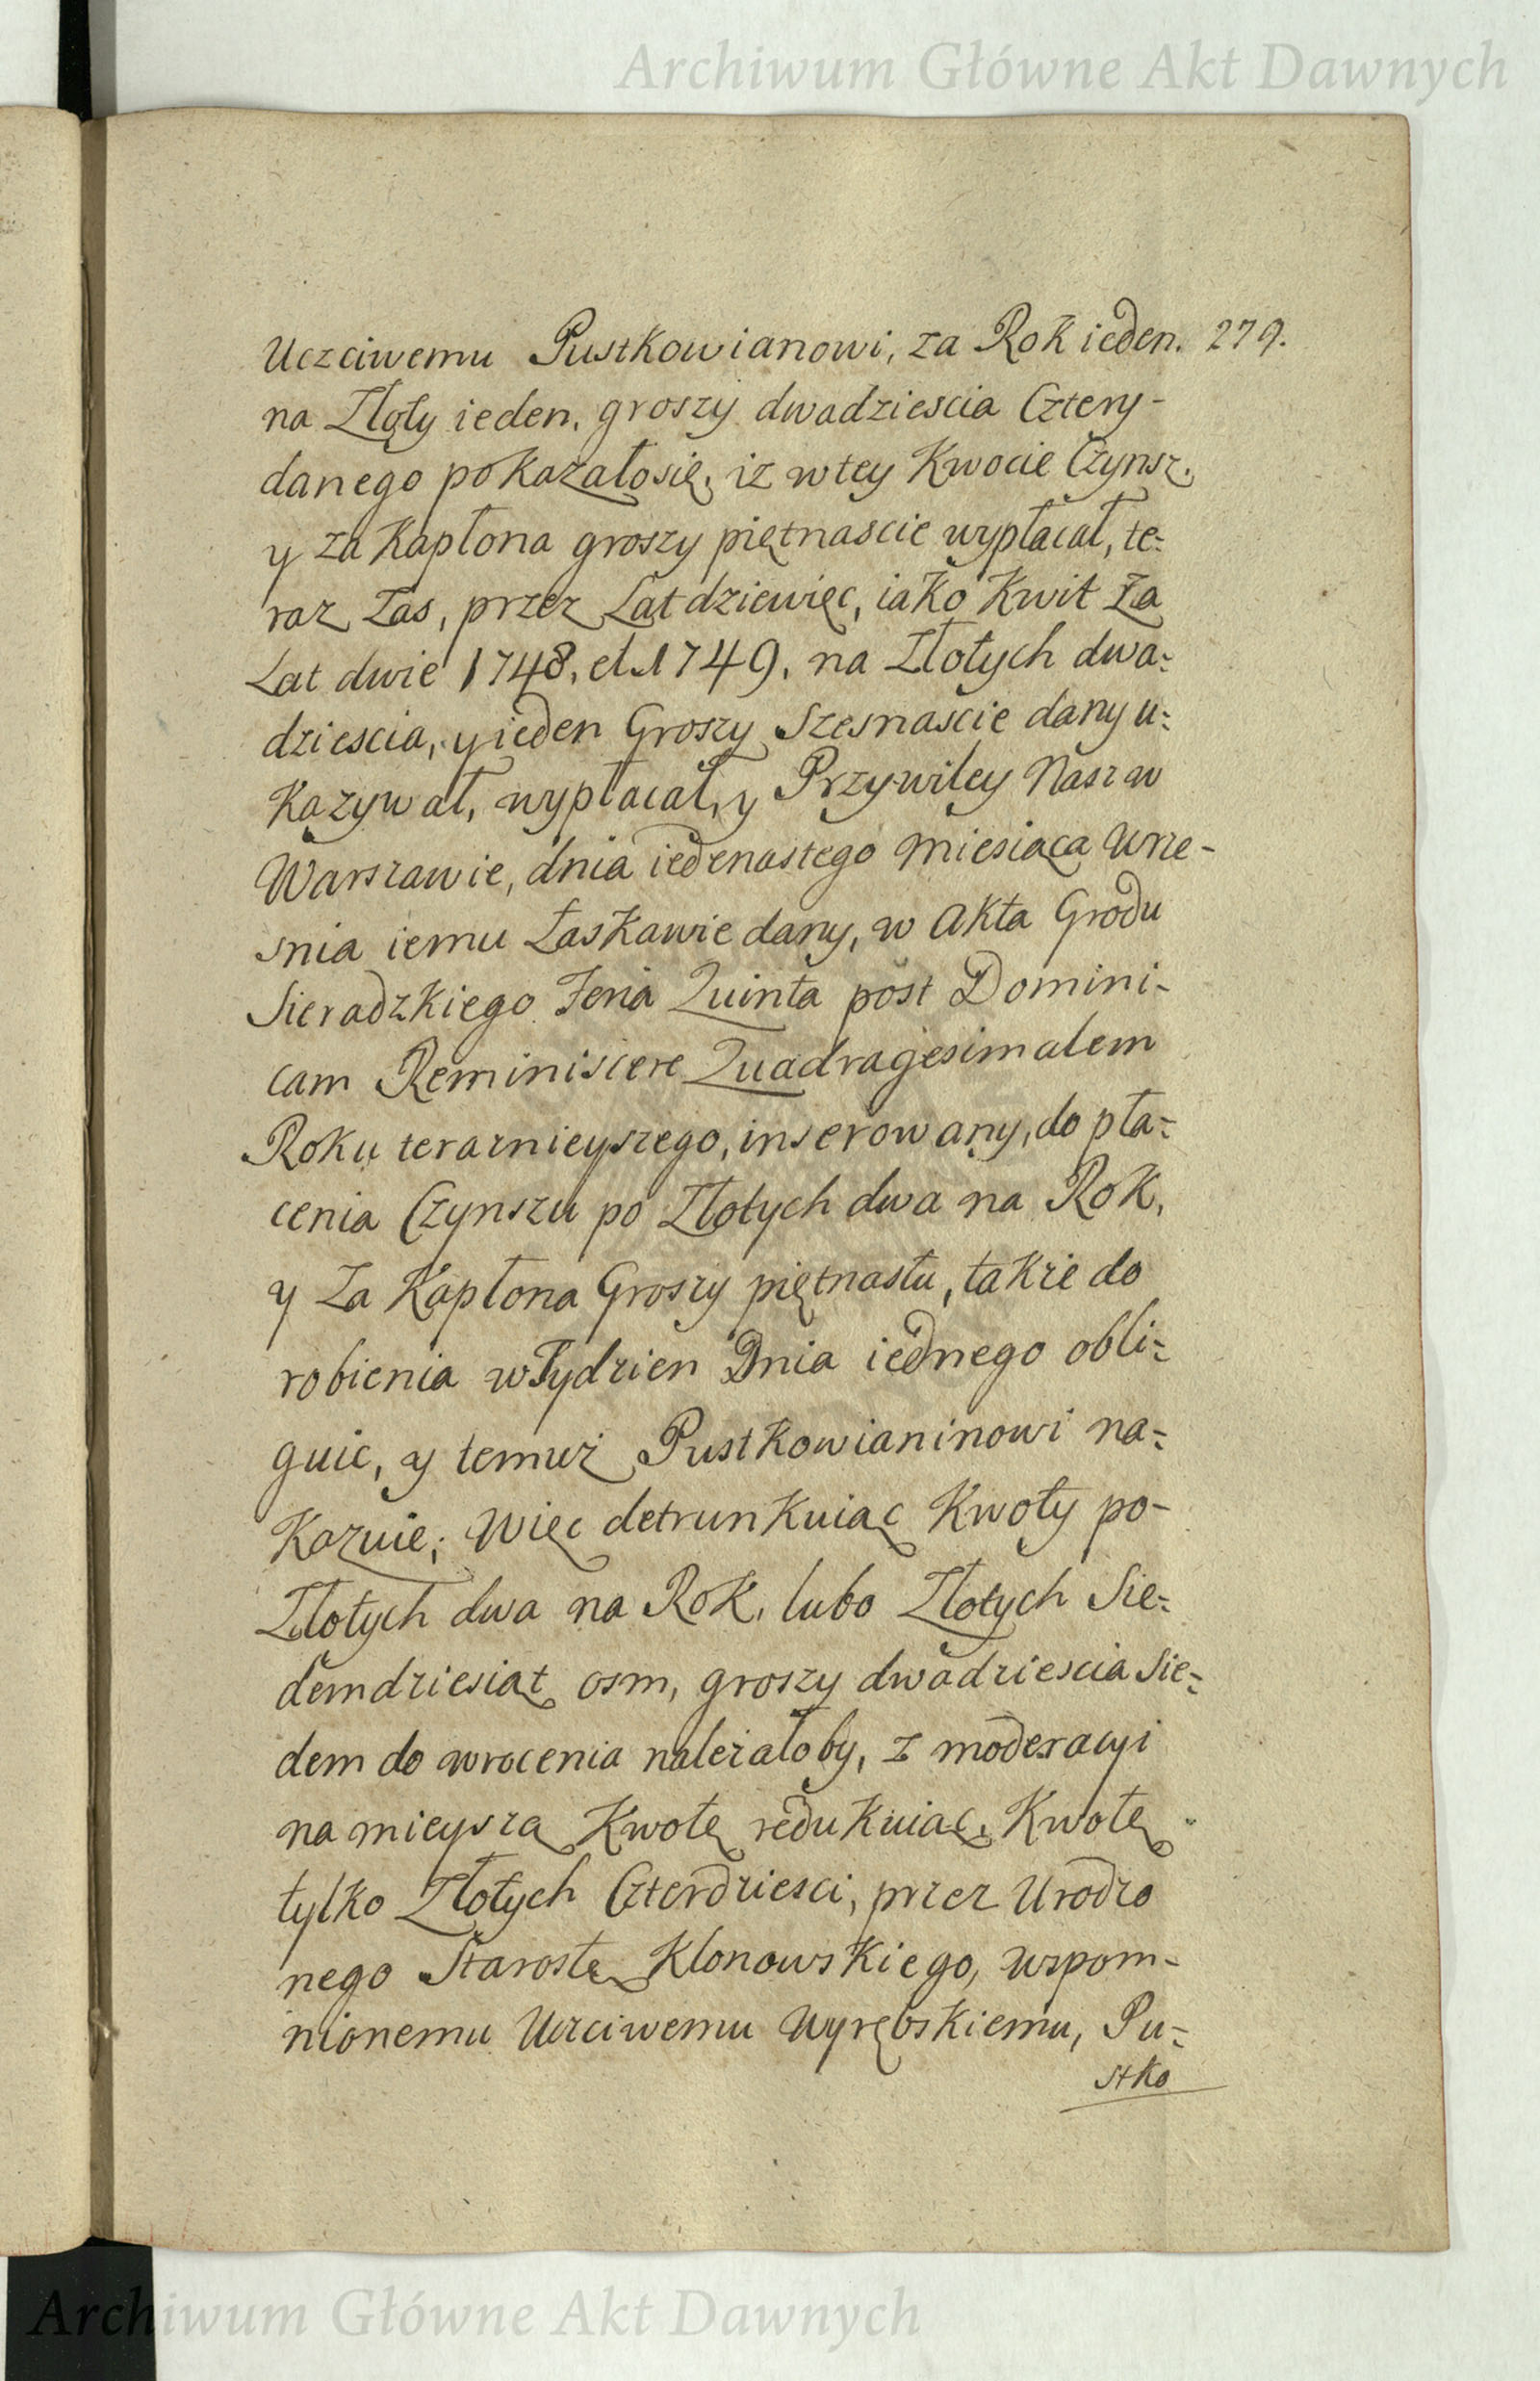 Archiwum Główne Akt Dawnych
Uczciwemu Pustkowianowi, za Rok ieden. 279.
na Złoty ieden, groszy dwadziescia Cztery-
danego pokazałosię, iz wtey Kwocie Czynsz,
y za Kapłona groszy piętnascie wypłacał, te=
raz zas, przez Lat dziewięc, iako Kwit za
Lat dwie 1748, et 1749, na Złotych dwa=
dziescia, y ieden Groszy Szesnascie dany u=
kazywał, wypłacał, y Przywiley Nasz w
Warszawie, dnia iedenastego Miesiąca Wrze-
snia iemu Łaskawie dany, w Akta Grodu
Sieradzkiego Feria Quinta post Domini-
cam Reminiscere Quadragesimalem
Roku terarznieyszego, inserowany, do pła=
cenia Czynszu po Złotych dwa na Rok,
y za Kapłona Groszy piętnastu, takze do
robienia wTydzien Dnia iednego obli=
guie, y temuz Pustkowianinowi na=
kazuie; Więc detrunkuiąc Kwoty po-
Złotych dwa na Rok, lubo Złotych Sie=
demdziesiąt osm, groszy dwadziescia Sie=
dem do wrocenia nalezałoby, z moderacyi
na mieyszą Kwotę redukuiąc, Kwotę
tylko Złotych Czterdziesci, przez Urodzo
nego Starostę Klonowskiego, wspom-
nionemu Uczciwemu Wyrębskiemu, Pu=
stko
Archiwum Główne Akt Dawnych